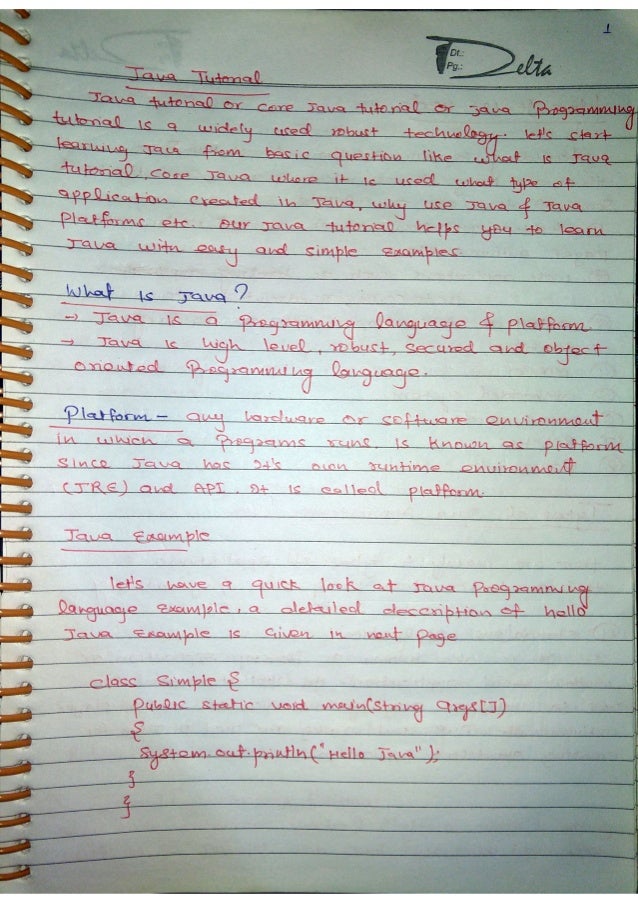 1
Dt.:
Pg.:
Delta
Java Tutorial
Java tutorial or core Java tutorial or java Programming
tutorial is a widely used robust technology. let's start
learning Java from basic question like what is Java
tutorial, core Java where it is used what type of
application created in Java, why use Java & Java
Platforms etc. our Java tutorial helps you to learn
Java with easy and simple examples
What is Java?
→ Java is a Programming language & platform
→ Java is high level, robust, secured and object
oriented Programming language.
Platform - any hardware or software environment
in which a programs runs. is known as platform
since Java has It's own runtime environment
(JRE) and API. It is called platform.
Java Example
let's have a quick look at Java programming
language example, a detailed description of hello
Java Example is Given in next page
class Simple {
Public static void main(String args[])
{
System.out.println("Hello Java");
}
}